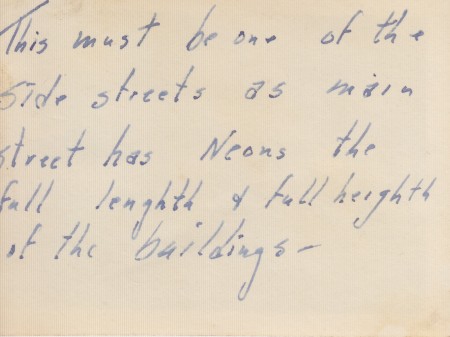 This must be one of the
side streets as main
street has Neons the
full lenghth & full heighth
of the buildings —